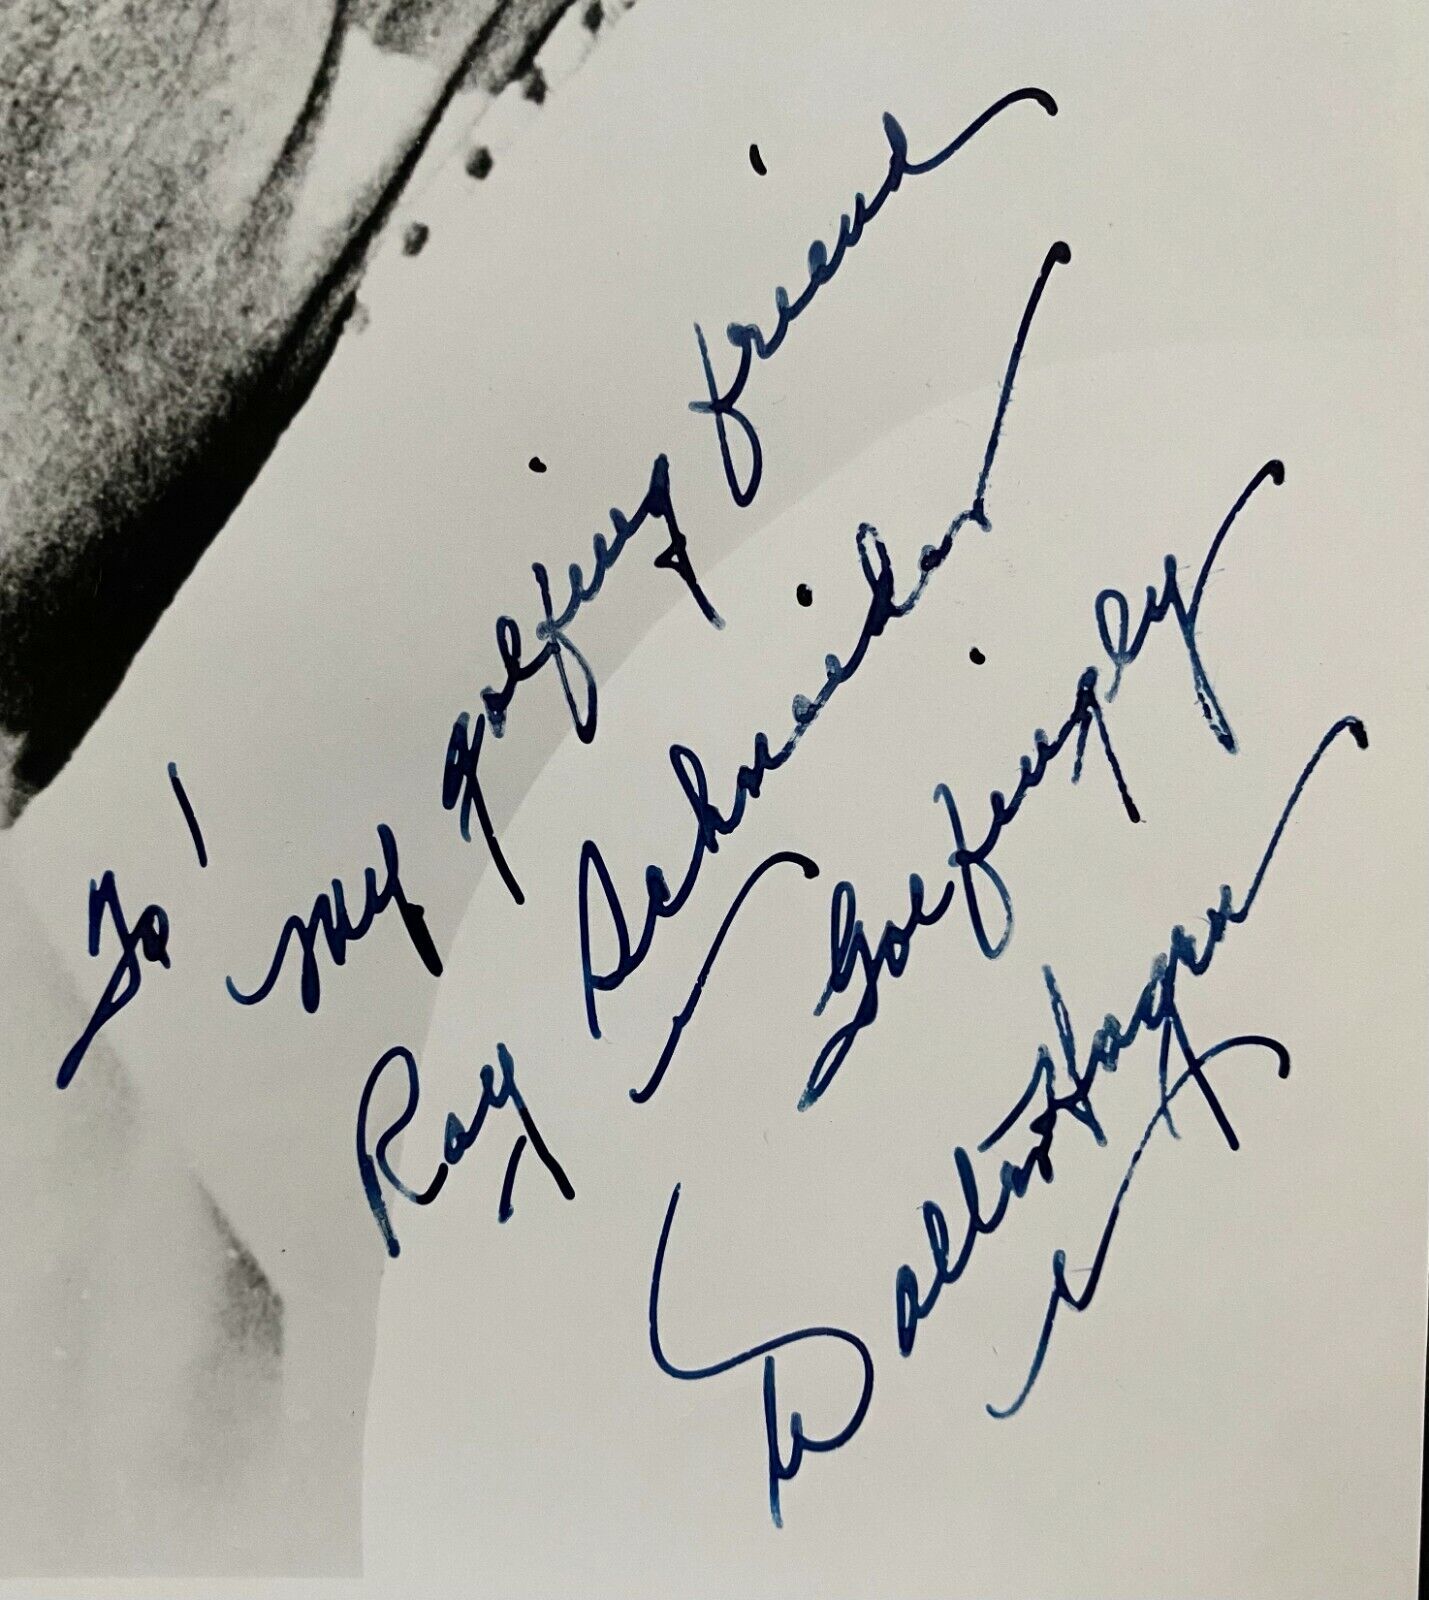 To my golfing friend
Ray Schneider
Golfingly
Walter Hagen